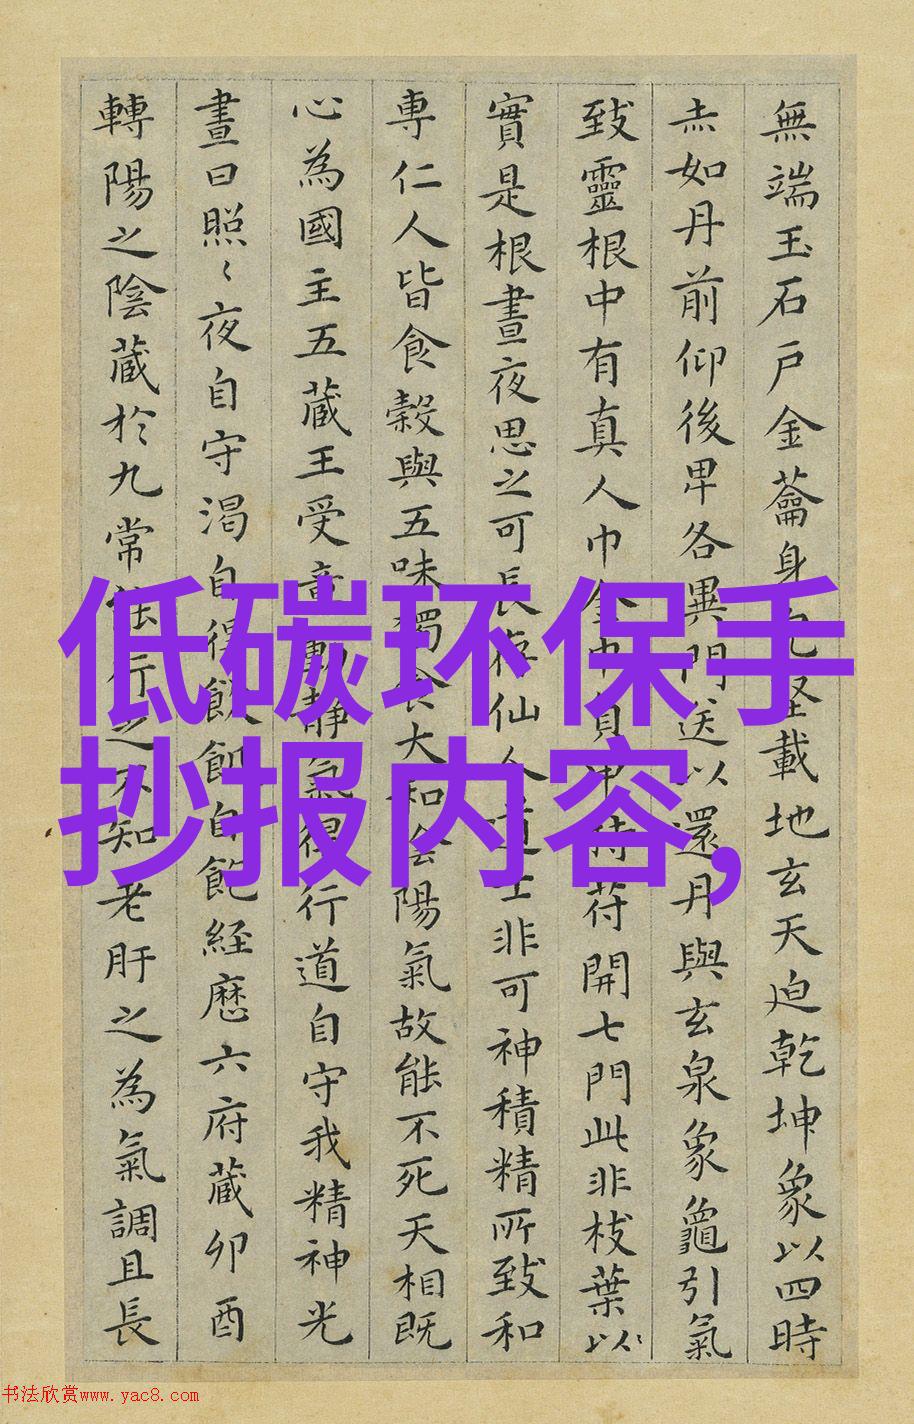 無端玉石戶金蘥身堅載地玄天迫乾坤象以四時
赤如丹前仰後卑各異門送以還丹與玄泉象龜引氣
致靈根中有真人巾金巾負甲持符開七門此非枝葉以
實是根晝夜思之可長存仙人道士非可神積精所致和
專仁人皆食穀與五味獨食大和陰陽氣故能不死天相既
心為國主五藏王受意動靜氣得行道自守我精神光
晝日照〻夜自守渴自得飲飢自飽經歷六府藏卯酉
轉陽之陰藏於九常能行之不知老肝之為氣調且長
低碳环保手
抄报内容,
书法欣赏www.yac8.com